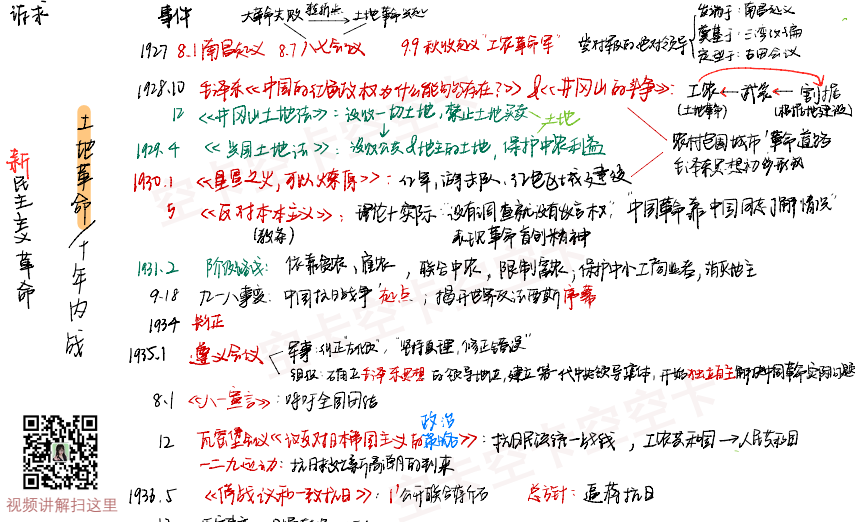 诉求 事件 大革命失败 转折点 土地革命兴起
发端于：南昌起义
1927 8.1南昌起义 8.7八七会议 9.9秋收起义"工农革命军" 党对军队绝对领导 奠基于：三湾改编
定型于：古田会议
1928.10 毛泽东《中国的红色政权为什么能够存在？》&《井冈山的斗争》： 工农 ← 武装 ← 割据
(土地革命) (根据地建设)
12 《井冈山土地法》：没收一切土地，禁止土地买卖
土地
1929.4 《兴国土地法》：没收公共&地主的土地，保护中农利益 农村包围城市'革命道路
毛泽东思想初步形成
1930.1 《星星之火，可以燎原》：红军、游击队、红色区域的建设
5 《反对本本主义》：理论+实际 "没有调查就没有发言权"，"中国革命靠中国同志了解情况"
(教条) 表现革命首创精神
1931.2 阶级路线：依靠贫农、雇农，联合中农，限制富农；保护中小工商业者，消灭地主
9·18 九一八事变：中国抗日战争'起点；揭开世界反法西斯序幕
1934 长征
1935.1 遵义会议 军事：纠正"左"倾，"坚持真理，修正错误"
组织：确立毛泽东思想的领导地位，建立第一代中央领导集体，开始独立自主解决中国革命实际问题
8.1 《八一宣言》：呼吁全国团结
政治
12 瓦窑堡会议《论反对日本帝国主义的策略》：抗日民族统一战线，工农共和国→人民共和国
一二九运动：抗日救亡新高潮的到来
1936.5 《停战议和一致抗日》：1'公开联合蒋介石 总方针：逼蒋抗日
土地革命/十年内战
新民主主义革命
视频讲解扫这里
空卡空卡空卡